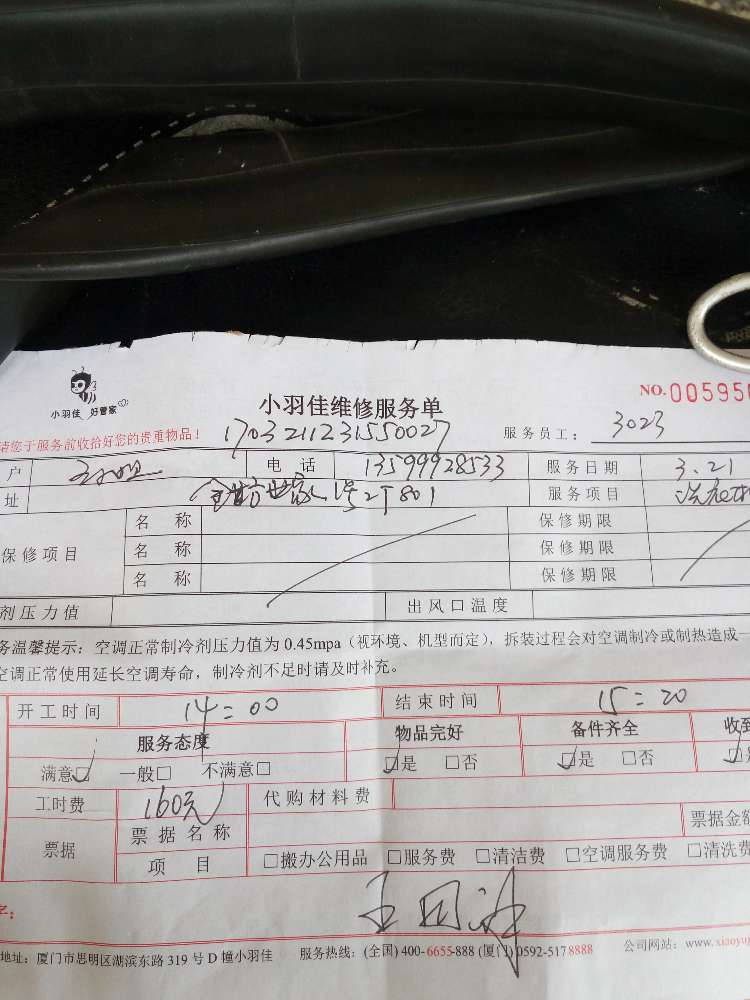 小羽佳 好管家
小羽佳维修服务单
NO.005950
请您于服务前收拾好您的贵重物品！ 1703211231550027 服务员工： 3023
户 电 话 13599928533 服务日期 3.21
址 1号2T801 服务项目
保修项目 名 称 保修期限
名 称 保修期限
名 称 保修期限
剂压力值 出风口温度
务温馨提示：空调正常制冷剂压力值为 0.45mpa（视环境、机型而定），拆装过程会对空调制冷或制热造成一
空调正常使用延长空调寿命，制冷剂不足时请及时补充。
开工时间 14：00 结束时间 15：20
服务态度 物品完好 备件齐全 收到
满意☑ 一般□ 不满意□ ☑是 □否 ☑是 □否 ☑是
工时费 160元 代购材料费
票据 票 据 名 称 票据金额
项 目 □搬办公用品 □服务费 □清洁费 □空调服务费 □清洗费
字：
地址：厦门市思明区湖滨东路 319 号 D 幢小羽佳 服务热线：(全国) 400-6655-888 (厦门) 0592-5178888 公司网站：www.xiaoyuj